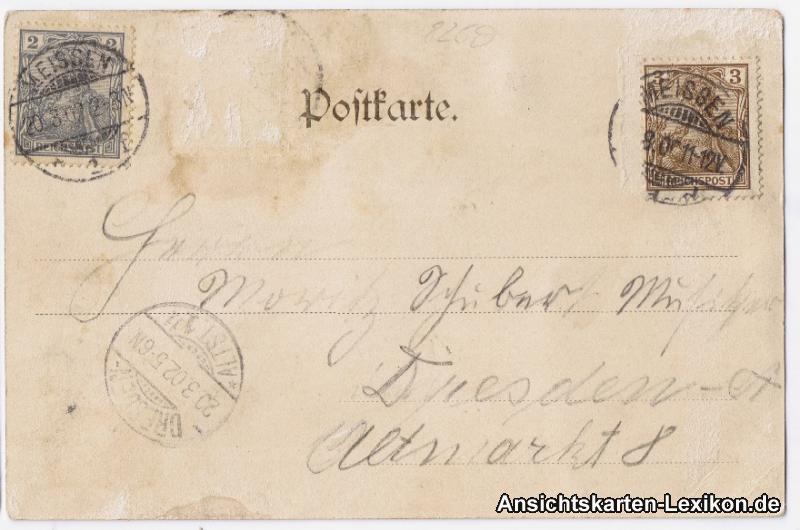 8260
2
MEISSEN
20.3.02
REICHSPOST
2
Postkarte.
3
MEISSEN
11-12V
REICHSPOST
Herrn
Moritz Schubert Musiker
DRESDEN-
ALTST. 1
20.3.02.5-6N
Dresden-A
Altmarkt 8
Ansichtskarten-Lexikon.de